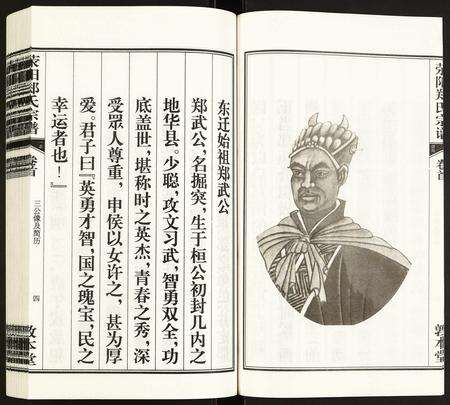 荥阳郑氏宗谱
卷首
敦本堂
东迁始祖郑武公
郑武公，名掘突，生于桓公初封几内之
地华县。少聪，攻文习武，智勇双全，功
底盖世，堪称时之英杰，青春之秀，深
受眾人尊重，申侯以女许之，甚为厚
爱。君子曰『英勇才智，国之瑰宝，民之
幸运者也！』
荥阳郑氏宗谱
卷首
三公像及简历
四
敦本堂